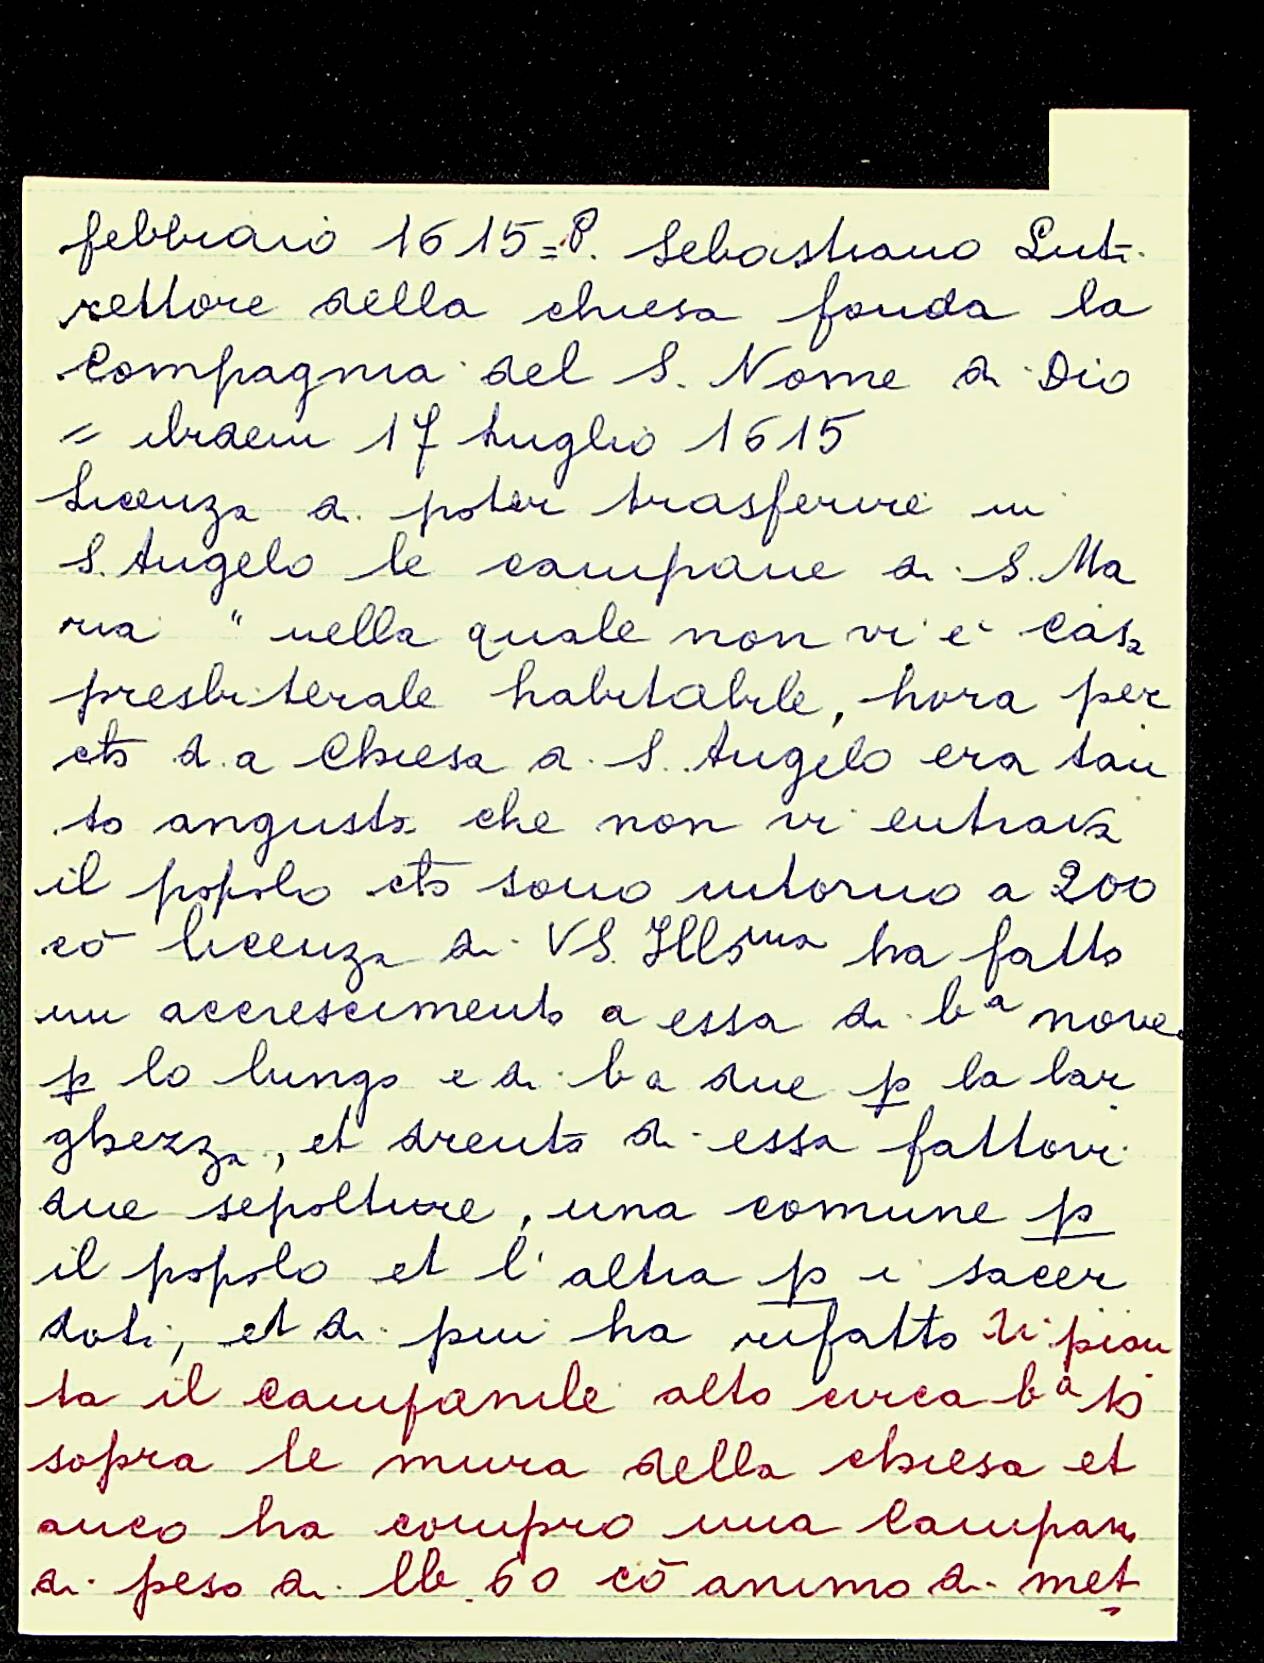 febbraio 1615 = P. Sebastiano Luti
rettore della chiesa fonda la
Compagnia del S. Nome di Dio
= ibidem 17 luglio 1615
Licenza di poter trasferire in
S. Angelo le campane di S. Ma
ria " nella quale non vi è casa
presbiterale habitabile, hora per
chè d.a Chiesa di S. Angelo era tan
to angusta che non vi entrava
il popolo chè sono intorno a 200
cō licenza di VS. Illsma ha fatto
un accrescimento a essa di ba nove
p lo lungo e di ba due p la lar
ghezza, et drento di essa fattovi
due sepolture, una comune p
il popolo et l'altra p i sacer
doti, et di più ha rifatto di pian
ta il campanile alto circa ba
sopra le mura della chiesa et
anco ha compro una campana
di peso di lb. 60 cō animo di met